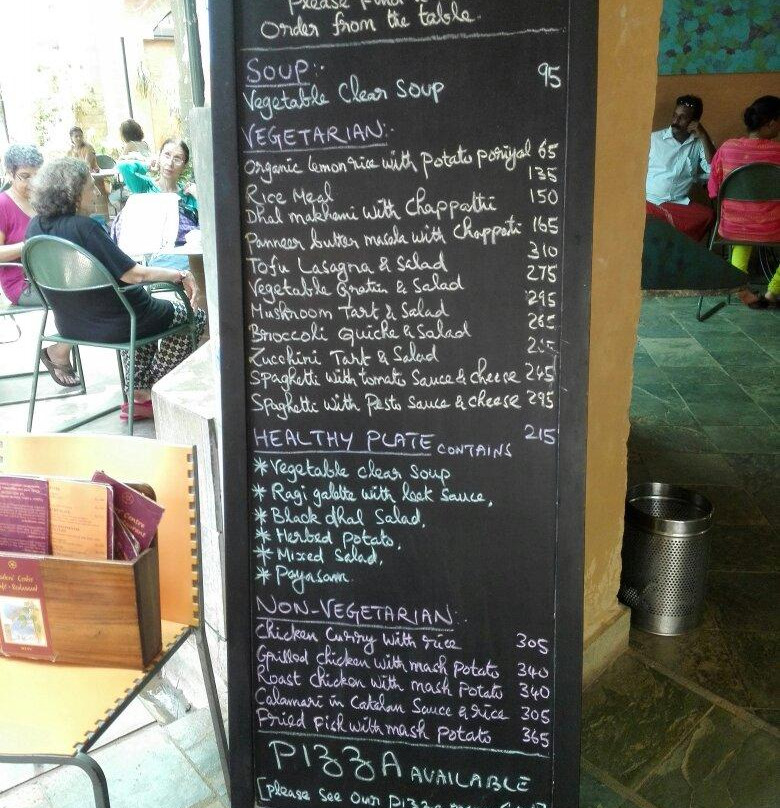 Order from the table.
SOUP:-
Vegetable Clear Soup 95
VEGETARIAN:-
Organic lemon rice with potato poriyal 65
Rice Meal 135
Dhal makhani with Chappathi 150
Panneer butter masala with Chappati 165
Tofu Lasagna & Salad 310
Vegetable Gratin & Salad 275
Mushroom Tart & Salad 295
Broccoli Quiche & Salad 265
Zucchini Tart & Salad
Spaghetti with tomato Sauce & cheese 245
Spaghetti with Pesto Sauce & cheese 295
HEALTHY PLATE CONTAINS 215
* Vegetable clear Soup
* Ragi galette with leek Sauce,
* Black dhal Salad,
* Herbed Potato,
* Mixed Salad,
* Payasam.
NON-VEGETARIAN:-
Chicken Curry with rice 305
Grilled chicken with mash Potato 340
Roast chicken with mash Potato 340
Calamari in Catalan Sauce & rice 305
Fried fish with mash Potato 365
PIZZA AVAILABLE
[please see our pizza